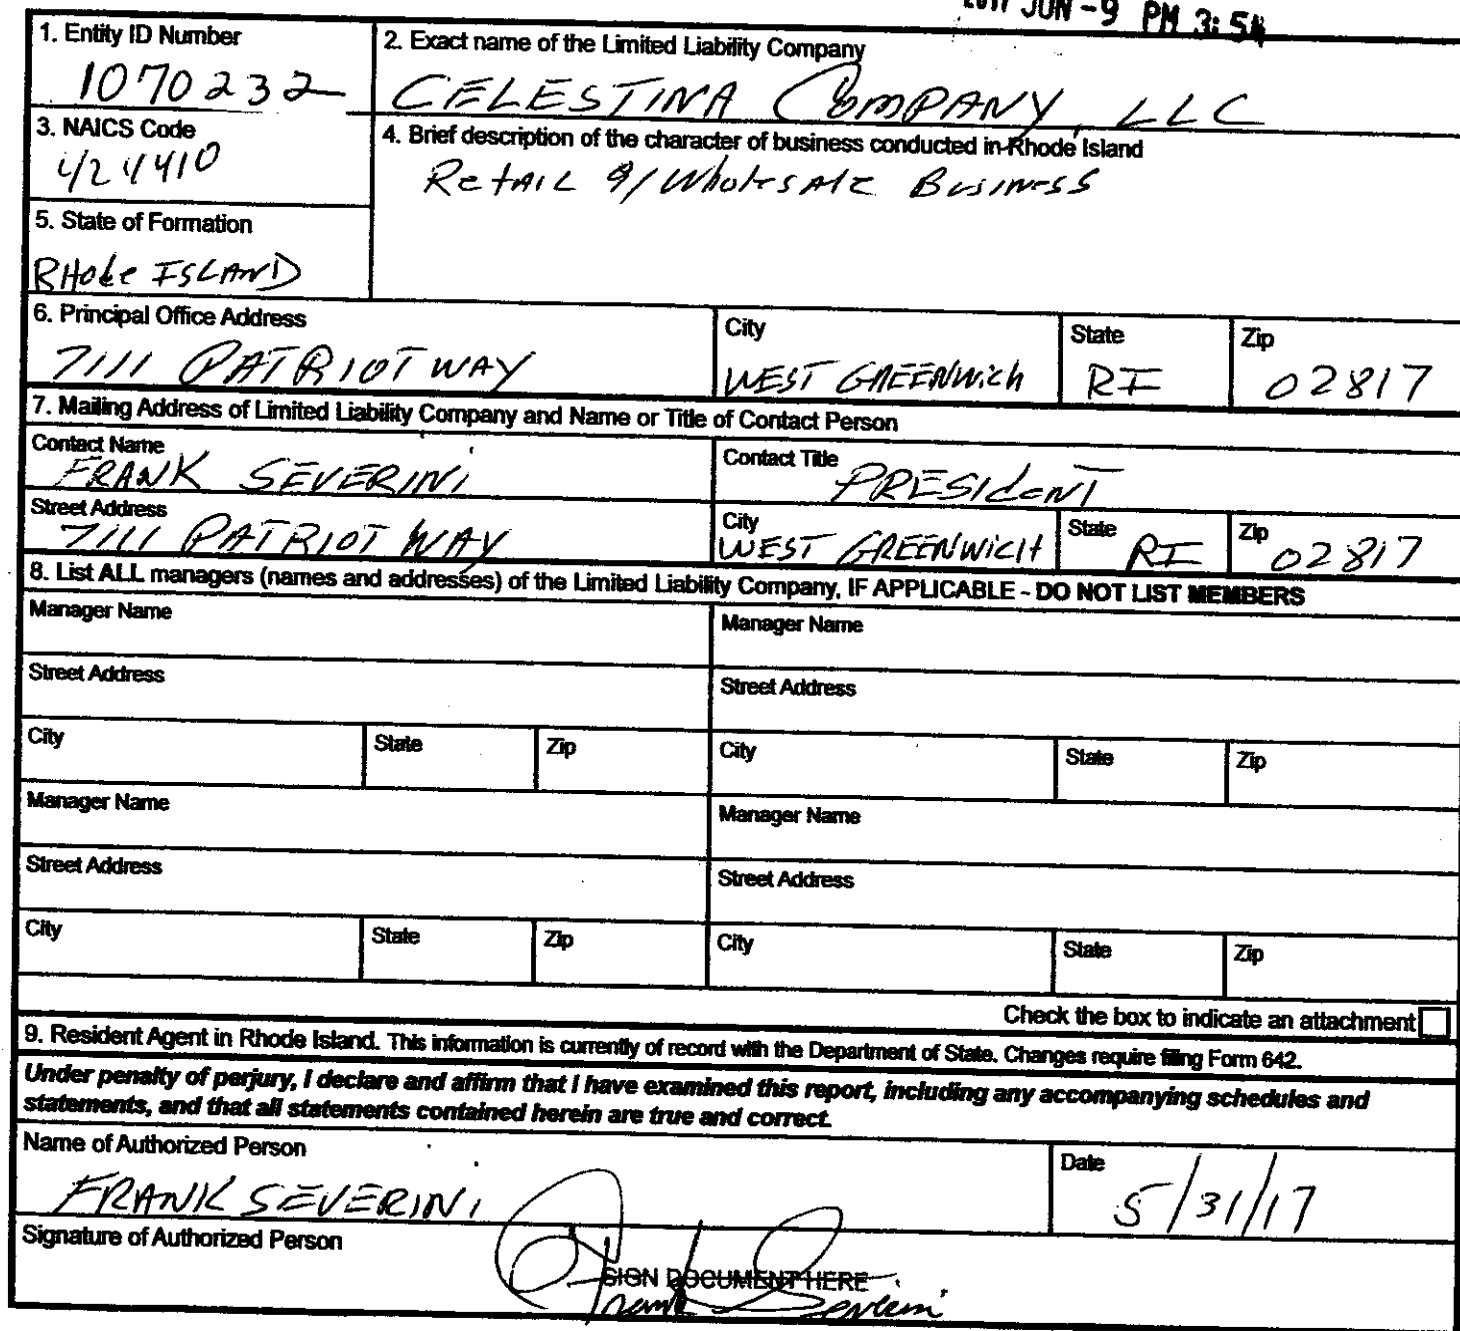 2017 JUN -9 PM 3:54
1. Entity ID Number
1070232
2. Exact name of the Limited Liability Company
CELESTINA COMPANY, LLC
3. NAICS Code
424410
4. Brief description of the character of business conducted in Rhode Island
Retail &/Wholesale Business
5. State of Formation
RHode ISLAND
6. Principal Office Address
7111 PATRIOT WAY
City
WEST GREENWich
State
RI
Zip
02817
7. Mailing Address of Limited Liability Company and Name or Title of Contact Person
Contact Name
FRANK SEVERINI
Contact Title
PRESIdeNT
Street Address
7111 PATRIOT WAY
City
WEST GREENWICH
State
RI
Zip
02817
8. List ALL managers (names and addresses) of the Limited Liability Company, IF APPLICABLE - DO NOT LIST MEMBERS
Manager Name
Manager Name
Street Address
Street Address
City State Zip City State Zip
Manager Name
Manager Name
Street Address
Street Address
City State Zip City State Zip
Check the box to indicate an attachment
9. Resident Agent in Rhode Island. This information is currently of record with the Department of State. Changes require filing Form 642.
Under penalty of perjury, I declare and affirm that I have examined this report, including any accompanying schedules and
statements, and that all statements contained herein are true and correct.
Name of Authorized Person
FRANK SEVERINI
Date
5/31/17
Signature of Authorized Person
SIGN DOCUMENT HERE
Frank Severini